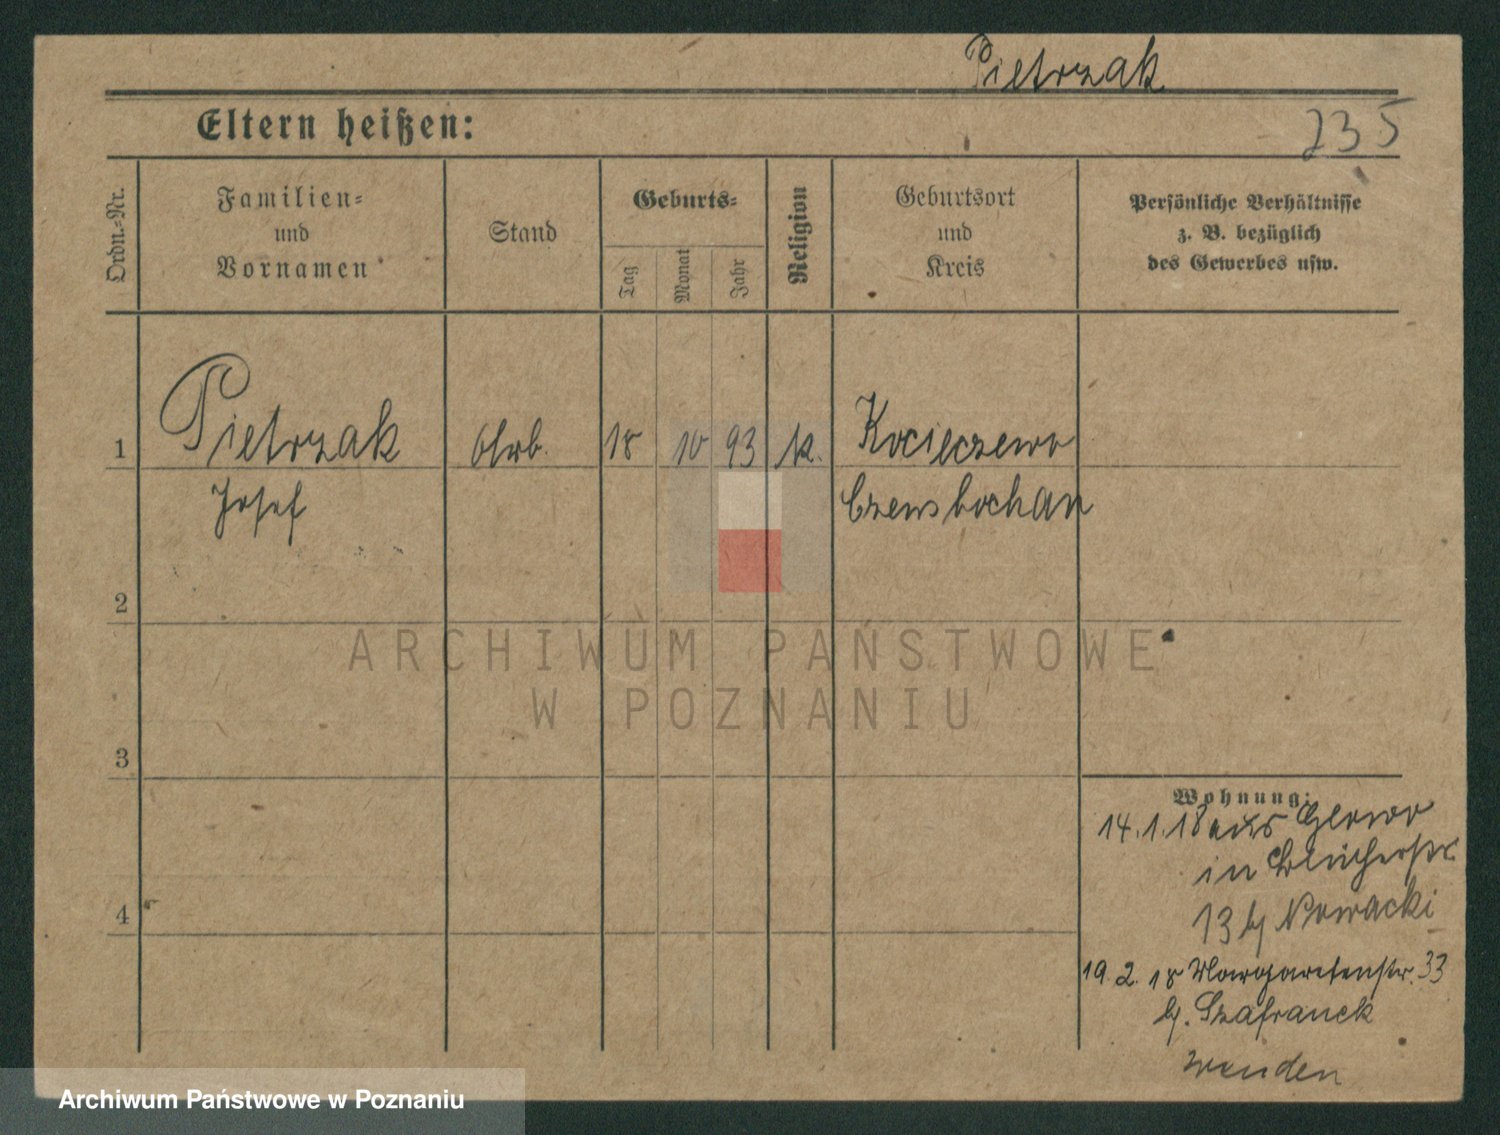 Pietrzak
Eltern heißen:
235
Ordn.-Nr.
Familien-
und
Vornamen
Stand
Geburts-
Tag
Monat
Jahr
Religion
Geburtsort
und
Kreis
Persönliche Verhältnisse
z. B. bezüglich
des Gewerbes usw.
1 Pietrzak 18 10 93 k. Kocieczewo
Josef
2
3
4
ARCHIWUM PAŃSTWOWE
W POZNANIU
Wohnung:
14.1.18 aus
in Blücherstr.
13 bj Nowacki
19.2.18 Margaretenstr. 33
bj. Szafranek
wenden
Archiwum Państwowe w Poznaniu